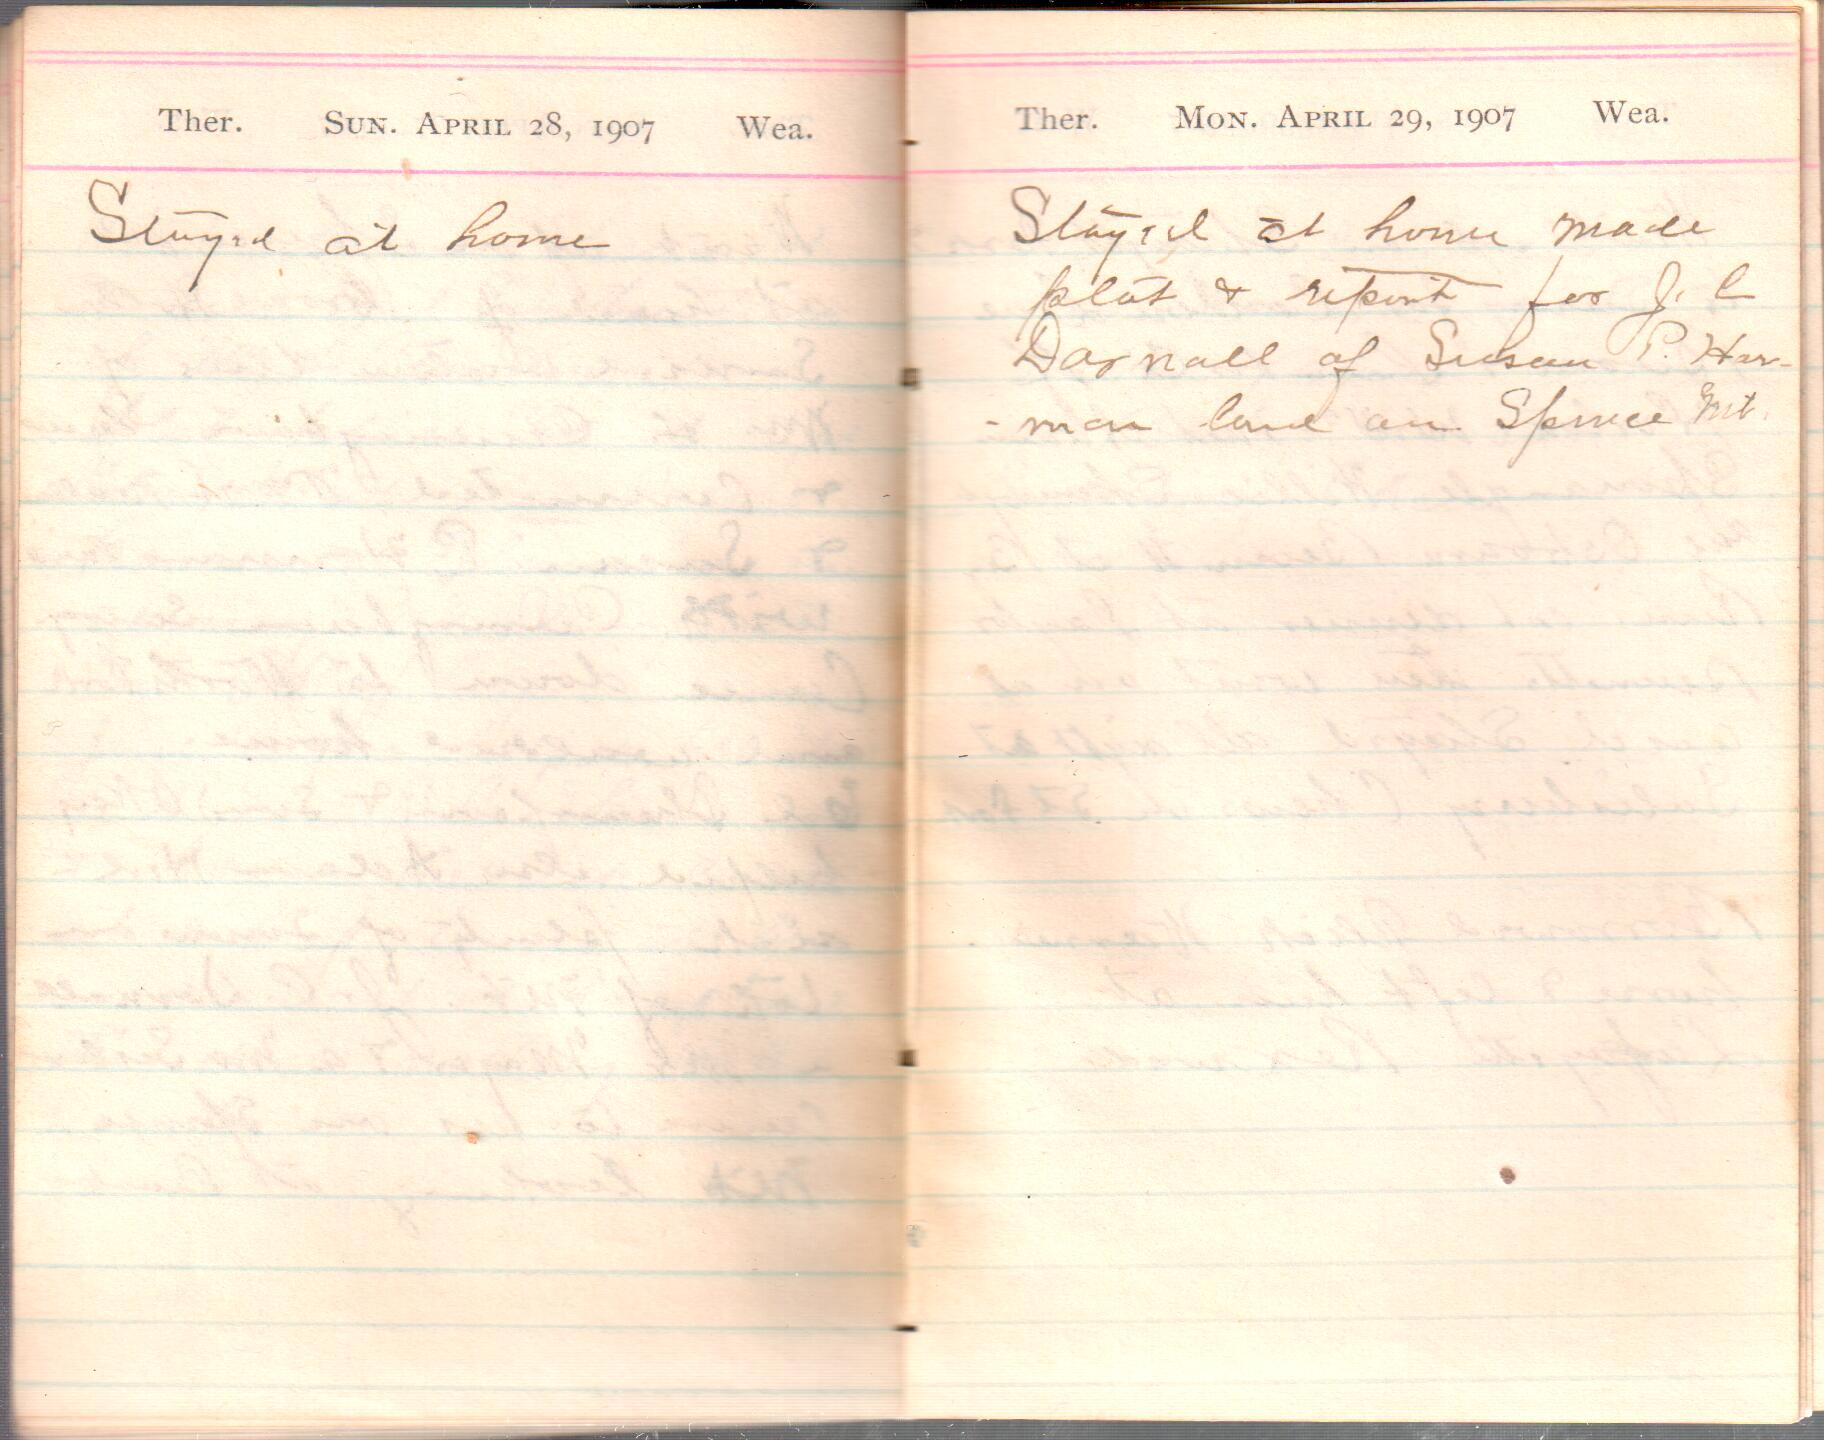 Ther. Sun. April 28, 1907 Wea.
Stayed at home
Ther. Mon. April 29, 1907 Wea.
Stayed at home made
plat & report for J. C
Darnall of Susan P. Har-
-man land on Spruce Mt.